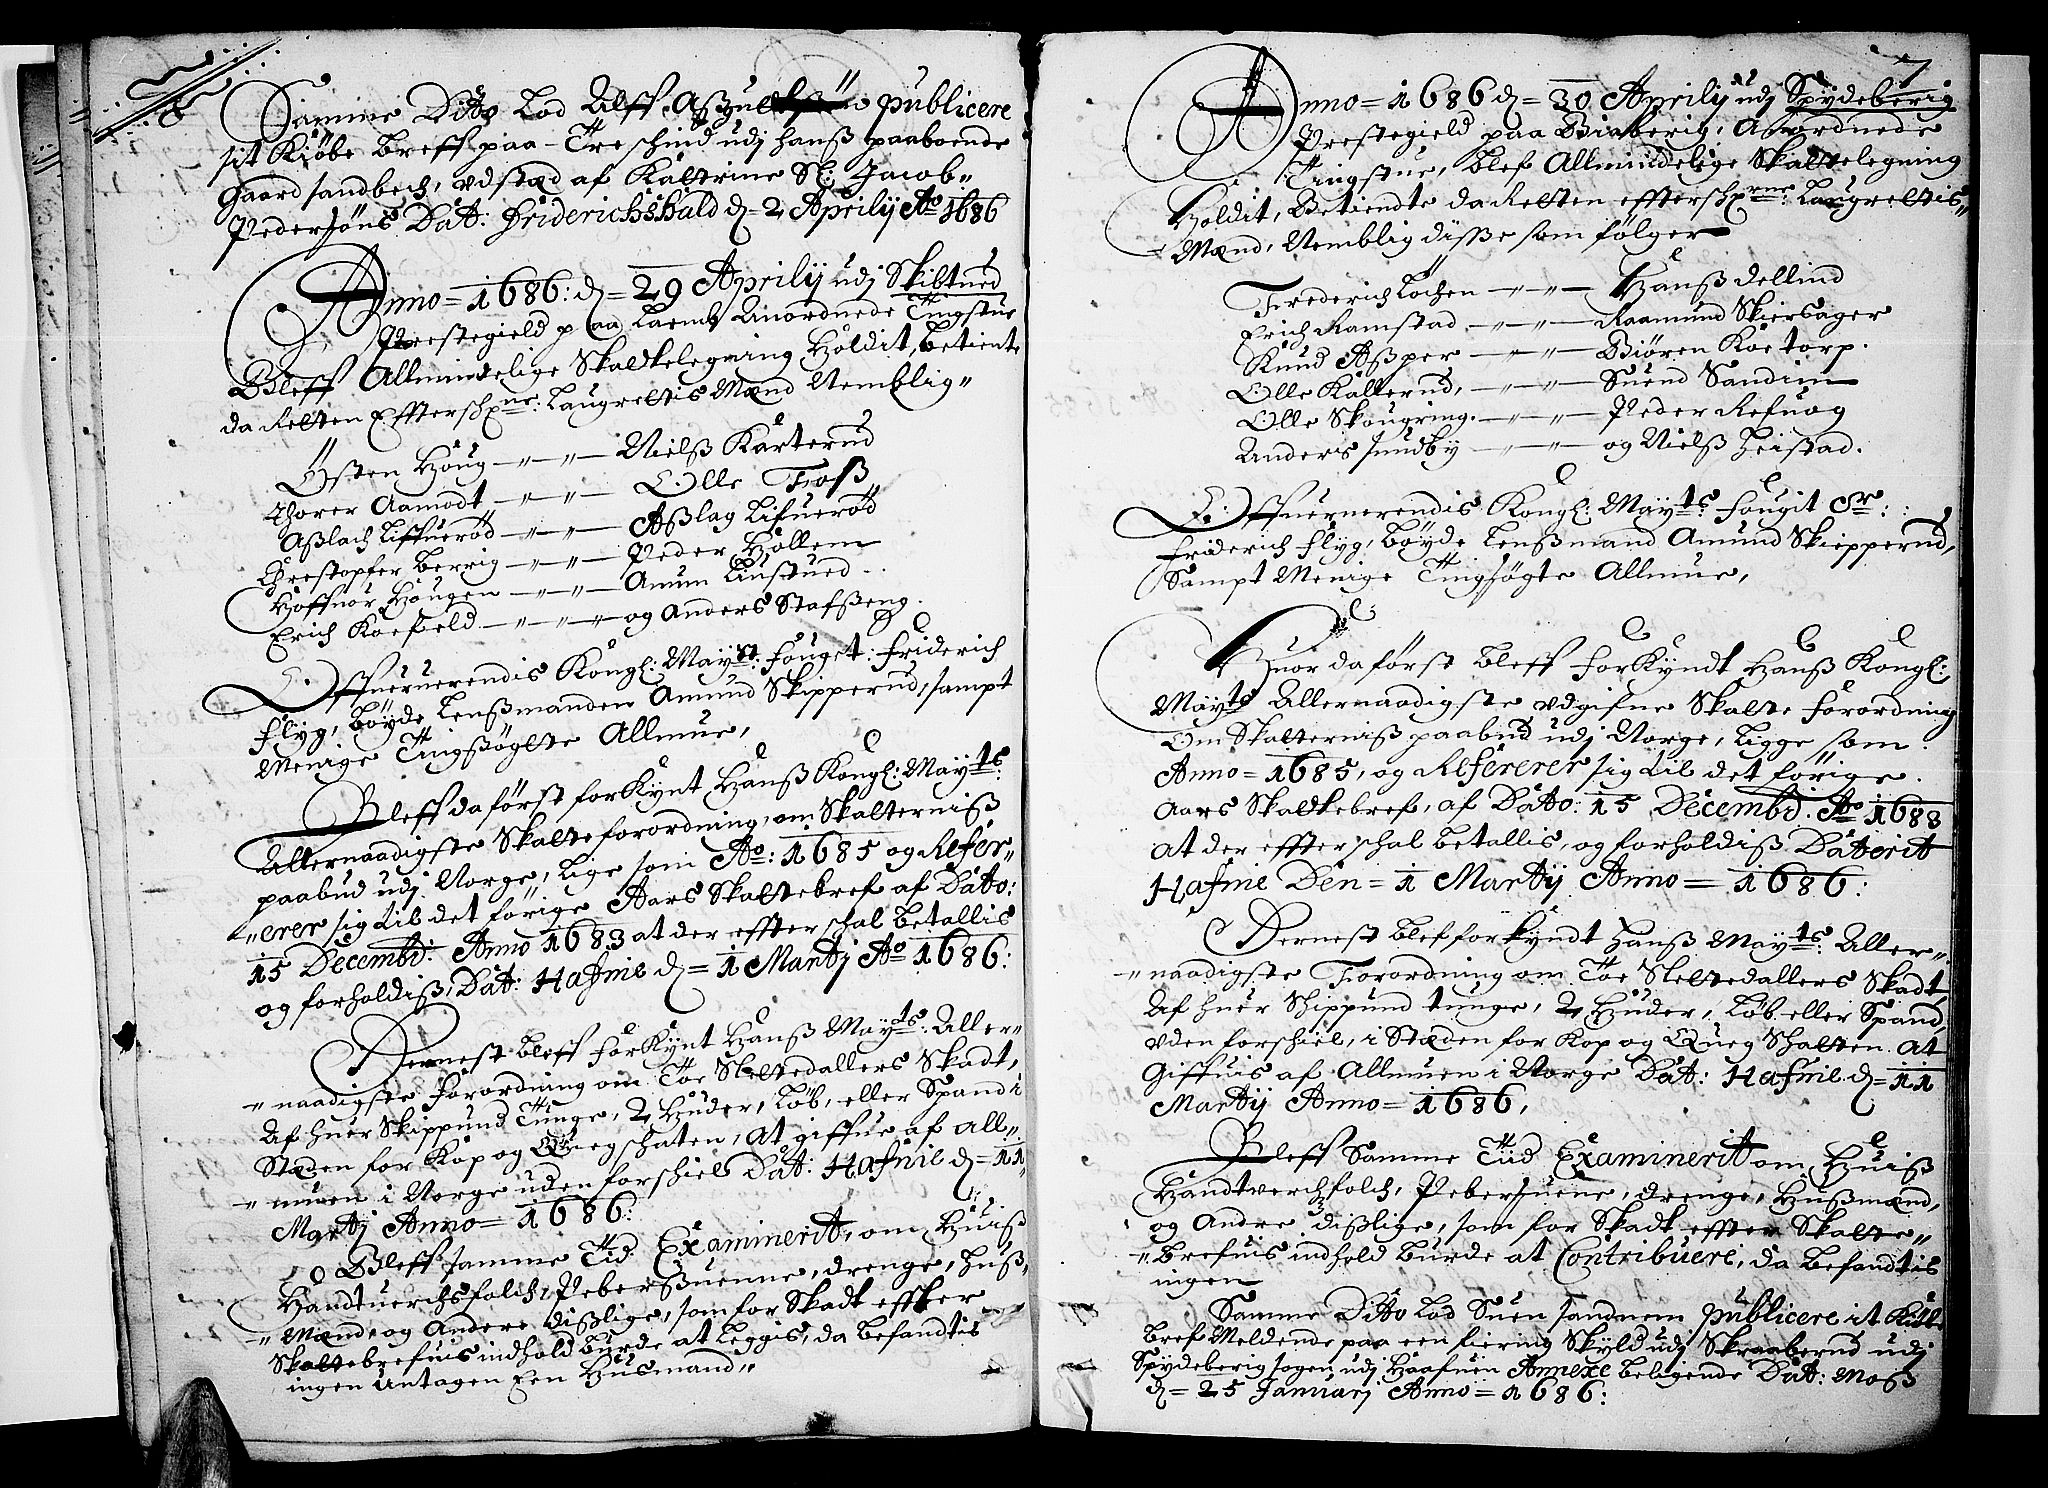 Samme Dito Lod Ulff Aßzuls publicere
sit Kiøbe breff paa Treschind udj hanß paaboende
Gaard sandbech, vdstæd af Kattrine Sl: Jacob„
Pedersøns Dat: Friderichshald d= 2 Aprilij Ao 1686
Anno = 1686: d= 29 Aprilij udj Skibtued
Prestegield paa Laemb Anordnede Tingstue
Bleff Allmindelige Skattelegning Holdit, betiente
da Retten Effterschr:ne: Laugrettis Mænd Nemblig„
Østen Houg — „ — „ — Nielß Karterud
Thorer Aamodt — „ — „ — Olle Foß
Aßlach Liffuerød — „ — „ — Aßlag Lifuerød
Chrestopher Berrig — „ — „ — Peder Hollem
Hoffuor Hougen — „ — „ — Amun Linstued
Erich Koefield — „ — „ — og Anders Stafßeng.
Offueruerendis Kongl: Mayst: Fouget: Friderich
Flyg, Bøyde Lenßmanden Amund Skipperud, sampt
Menige Tingßøgte Allmue,
Bleff da først forkynt Hanß Kongl: Mayts:
Allernaadigste Skatteforordning, om Skatterniß
paabud udj Norge, lige som Ao: 1685 og Refer„
„erer sig til det førige Aars Skattebref af Dato:
15 Decembr: Anno 1683 at der effter schal betallis
og forholdiß, Dat: Hafnie d= 1 Martij Ao 1686:
Dernest bleff forkynt Hanß Mayts: Aller„
„naadigste Forordning om Toe Slettedallers Skadt,
Af huer Skippund Tunge, 2 Huder, Løb, eller Spand i
Stæden for Kop og Queg schaten, at giffue af all„
„muen i Norge uden forschiel Dat: Hafnie d= 11
Martij Anno = 1686:
Bleff samme Tid Examinerit, om Huiß
Handtuerchsfolch, Peberßuenne, drenge, Huß„
„Mænd, og Andere dißlige, som for Skadt effter
Skattebrefuis indhold burde at leggis, da befandtis
ingen Untagen Een Husmand„
7
Anno = 1686 d= 30 Aprilij udj Spydeberig
Prestegield paa Biaberig, Anordnede
Tingstue, blef Allmindelige Skattelegning
Holdit, Betiente da Retten effterschr:ne: Laugrettis„
„Mænd, Nemblig diße som følger
Frederich Løchen — „ — „ — Hanß dellind
Erich Ramstad — „ — „ — Raamund Skiersager
Knud Aßper — „ — „ — Biøren Koetorp.
Olle Kallerud, — „ — „ — Suend Sandim
Olle Skougring. — „ — „ — Peder Refuog
Anderis sundby — „ — „ — og Nielß Heistad.
Offueruerendis Kongl: Mayts: Fougit Sr::
Friderich Flyg, Bøyde Lenßmand Amund Skiepperud,
Sampt Menige Tingsøgte Allmue,
Huor da først bleff forkyndt Hanß Kongl:
Mayts Allernaadigste vdgifne Skatte Forordning
Om Skatterniß paabud udj Norge, ligge som
Anno = 1685, og Refererer sig til det førige.
Aars Skattebref, af Dato: 15 Decembr. Ao 1683
at der effter schal betallis, og forholdiß Daterit
Hafnie Den = 1 Martij Anno = 1686:
Dernest blef forkyndt Hanß Mayts: Aller„
„naadigste Forordning om Toe Slettedallers Skadt
Af huer Schippund tunge, 2 Huder, Løb eller Spand,
vden forschiel, i Stæden for Kop og Queg Schatten. At
Giffuis af Allmuen i Norge Dat: Hafnie d= 11
Martij Anno = 1686,
Bleff Samme Tiid Examinerit om Huiß
Handtverchfolch, Pebersuene, drenge, Hußmænd,
og Andre dißlige, som for Skadt effter Skatte„
„brefuis indhold burde at Contribuere, da befandtis
ingen
Samme Dito Lod Suen sandnem publicere it Kiøbe
bref Meldende paa een fiering Skyld udj Skraaberud udj
Spydeberig sogen udj Haafuen Annexe beligende Dat: Moß
d= 25 Januarj Anno = 1686: